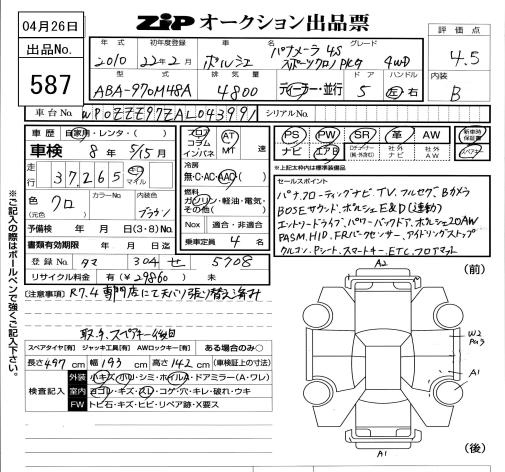 04月26日
ZIP オークション出品票
出品No.
587
評価点
4.5
内装
B
年式 初年度登録 車名 グレード
2010 22年2月 ポルシェ パナメーラ 4S
スポーツクロノPKG 4WD
型式 排気量 ドア ハンドル
ABA-970M48A 4800 ディーラー・並行 5 左 右
車台No. WP0ZZZ97ZAL043991 シリアルNo.
車歴 自家用・レンタ・( )
車検 8年 5/15月
走行 37,265 キロ マイル
色 クロ
(元色)
カラーNo.
内装色
ブラウン
予備検 年 月 日(3・8)No.
書類有効期限 年 月 日迄
登録No. タマ 304 せ 5708
リサイクル料金 有(¥29860) 未
フロア コラム インパネ
AT MT 速
冷房
無・C・AC・AAC
燃料
ガソリン・軽油・電気・その他( )
Nox 適合・非適合
乗車定員 4 名
PS PW SR 革 AW 新車時保証書
ナビ エアB 社外ナビ 社外AW スペアキー
※上記太枠内は標準装備品
セールスポイント
パナ、フローティングナビ、TV、フルセグ、Bカメラ
BOSEサウンド、ポルシェE&D(連動)
エントリードライブ、パワーバックドア、ポルシェ20AW
PASM、HID、FRパークセンサー、アイドリングストップ
クルコン、Pシート、スマートキー、ETC、フロアマット
(注意事項) R7.4 専門店にて天バリ張り替え済み
取・予、スペアキー後日
スペアタイヤ[有] ジャッキ工具[有] AWロックキー[有] ある場合のみ○
長さ497cm 幅193cm 高さ142cm (車検証上の寸法)
検査記入
外装 小キズ・小凹・シミ・ホイルA・ドアミラー(A・ワレ)
室内 ヨゴレ・キズ・スレ・コゲ・穴・キレ・破れ・ウキ
FW トビ石・キズ・ヒビ・リペア跡・X要ス
※ご記入の際はボールペンで強くご記入下さい。
(前)
A2
W2
A1
A1
(後)